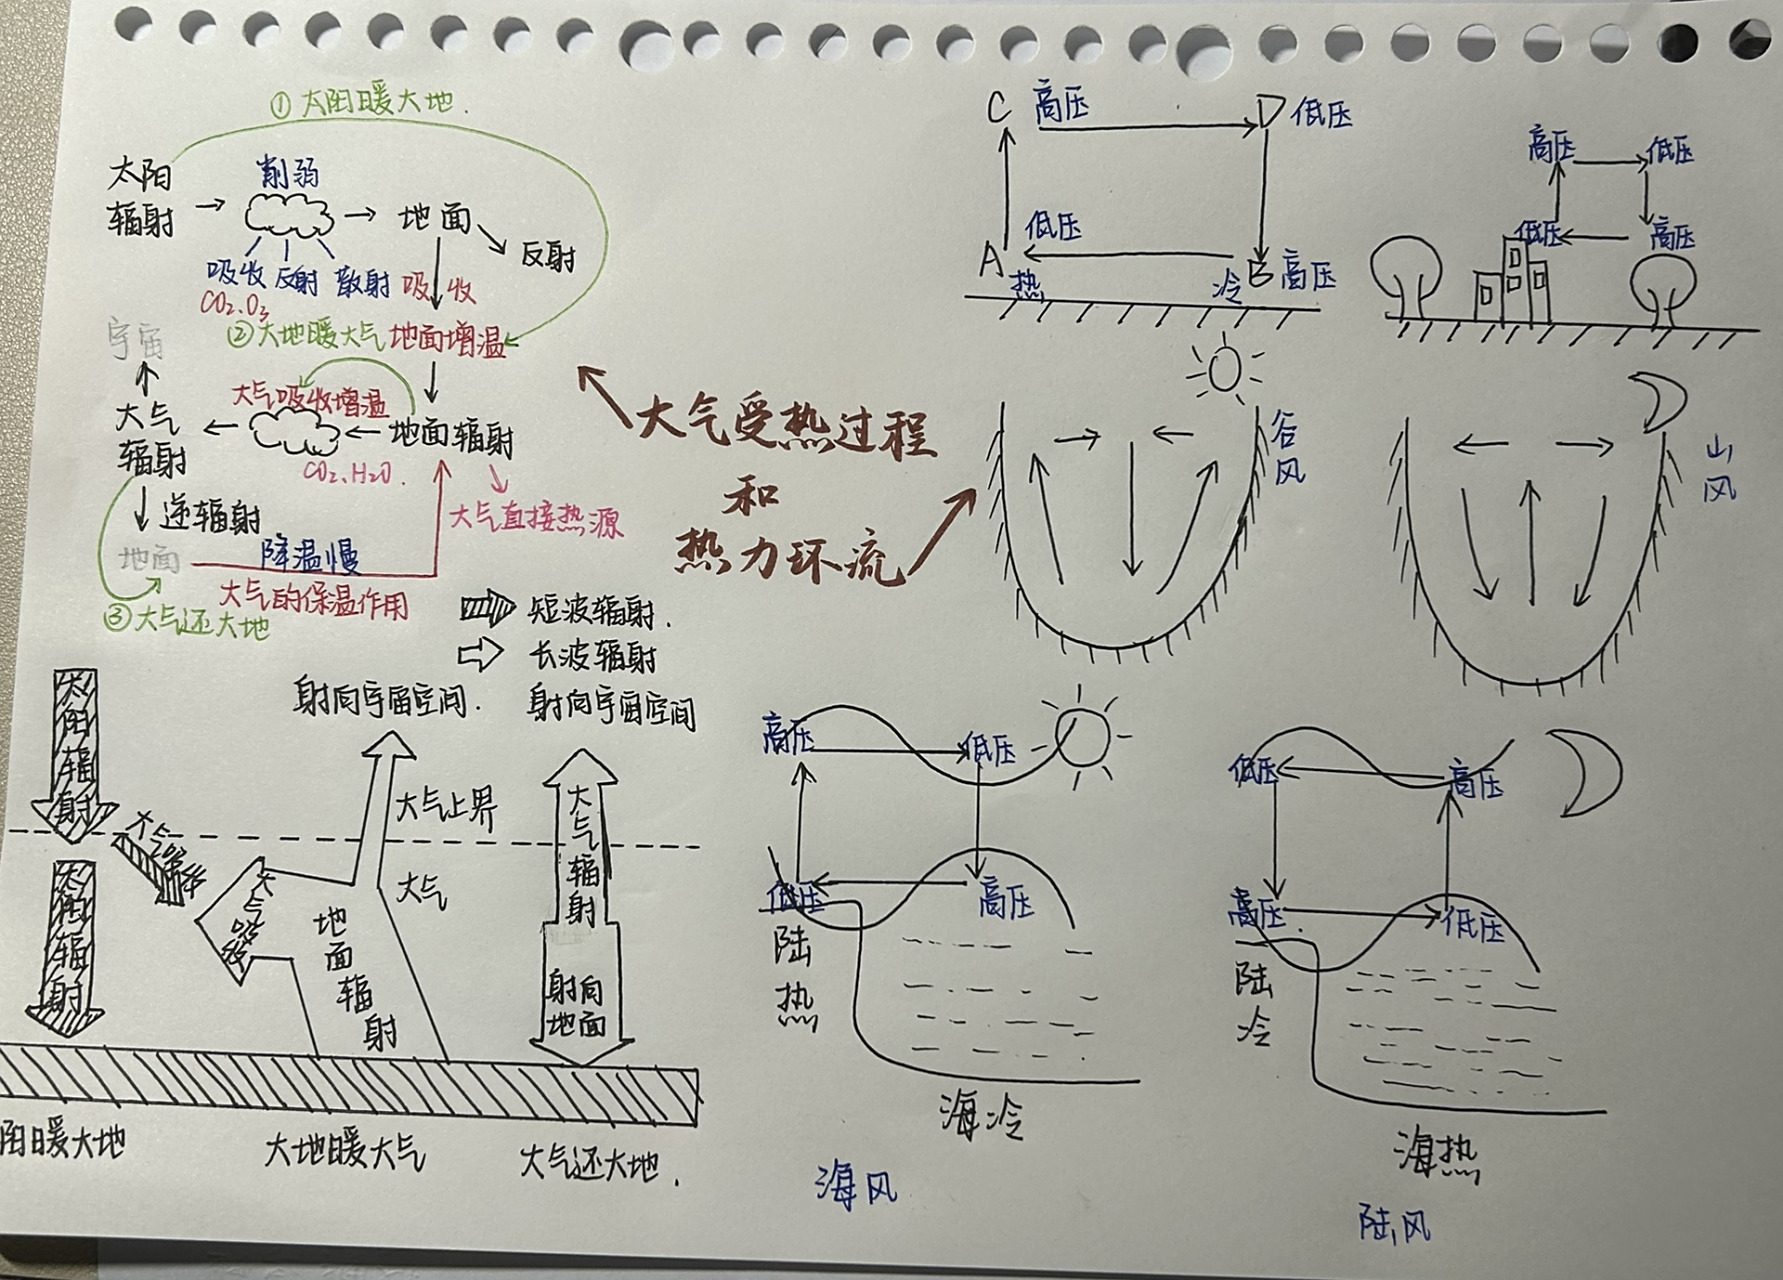 ①太阳暖大地.
太阳
辐射
削弱
地面
反射
吸收 反射 散射
吸收
CO₂.O₃
②大地暖大气
地面增温
宇宙
大气吸收增温
大气
辐射
地面辐射
CO₂、H₂O.
大气直接热源
逆辐射
地面
降温慢
大气的保温作用
③大气还大地
短波辐射.
长波辐射
大气受热过程
和
热力环流
C 高压
D 低压
低压
A
热
冷
B 高压
高压
低压
低压
高压
谷风
山风
射向宇宙空间.
射向宇宙空间
太阳辐射
大气吸收
太阳辐射
大气吸收
地面辐射
大气上界
大气
大气辐射
射向
地面
阳暖大地
大地暖大气
大气还大地.
高压
低压
低压
高压
陆热
海冷
海风
低压
高压
高压
低压
陆冷
海热
陆风